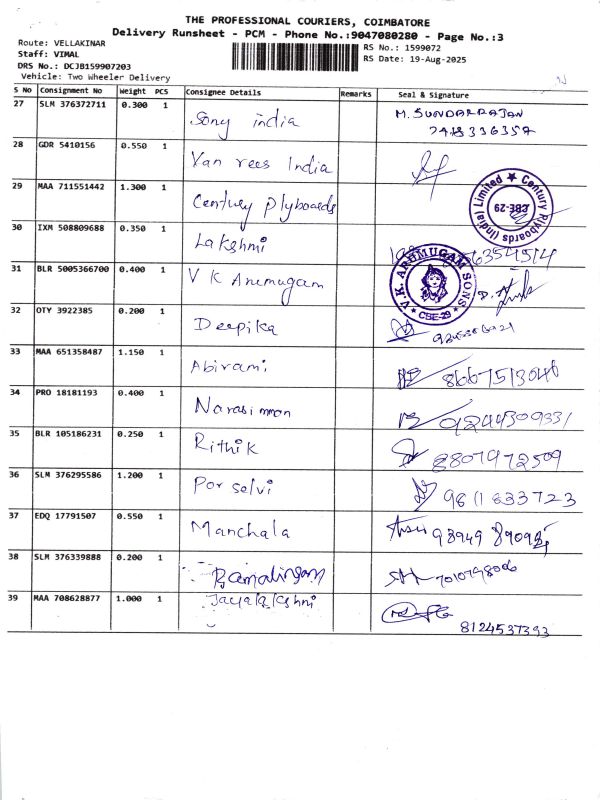 THE PROFESSIONAL COURIERS, COIMBATORE
Delivery Runsheet - PCM - Phone No.:9047080280 - Page No.:3
Route: VELLAKINAR
Staff: VIMAL
DRS No.: DCJB159907203
Vehicle: Two Wheeler Delivery
RS No.: 1599072
RS Date: 19-Aug-2025
S No Consignment No Weight PCS Consignee Details Remarks Seal & Signature
27 SLM 376372711 0.300 1 Sony india M. SUNDARRAJAN
7418336357
28 GDR 5410156 0.550 1 Van rees India
29 MAA 711551442 1.300 1 Century plyboards
Century Plyboards (India) Limited ★ CBE-29
30 IXM 508809688 0.350 1 Lakshmi
31 BLR 5005366700 0.400 1 V K Arumugam
V.K. ARUMUGAM SONS ★ CBE-29 ★
32 OTY 3922385 0.200 1 Deepika
33 MAA 651358487 1.150 1 Abirami 8667513046
34 PRO 18181193 0.400 1 Narasimman 9244309331
35 BLR 105186231 0.250 1 Rithik 8807972509
36 SLM 376295586 1.200 1 Por selvi 9611633723
37 EDQ 17791507 0.550 1 Manchala
38 SLM 376339888 0.200 1 Ramalingam 7010798006
39 MAA 708628877 1.000 1 Jayalakshni
8124537393